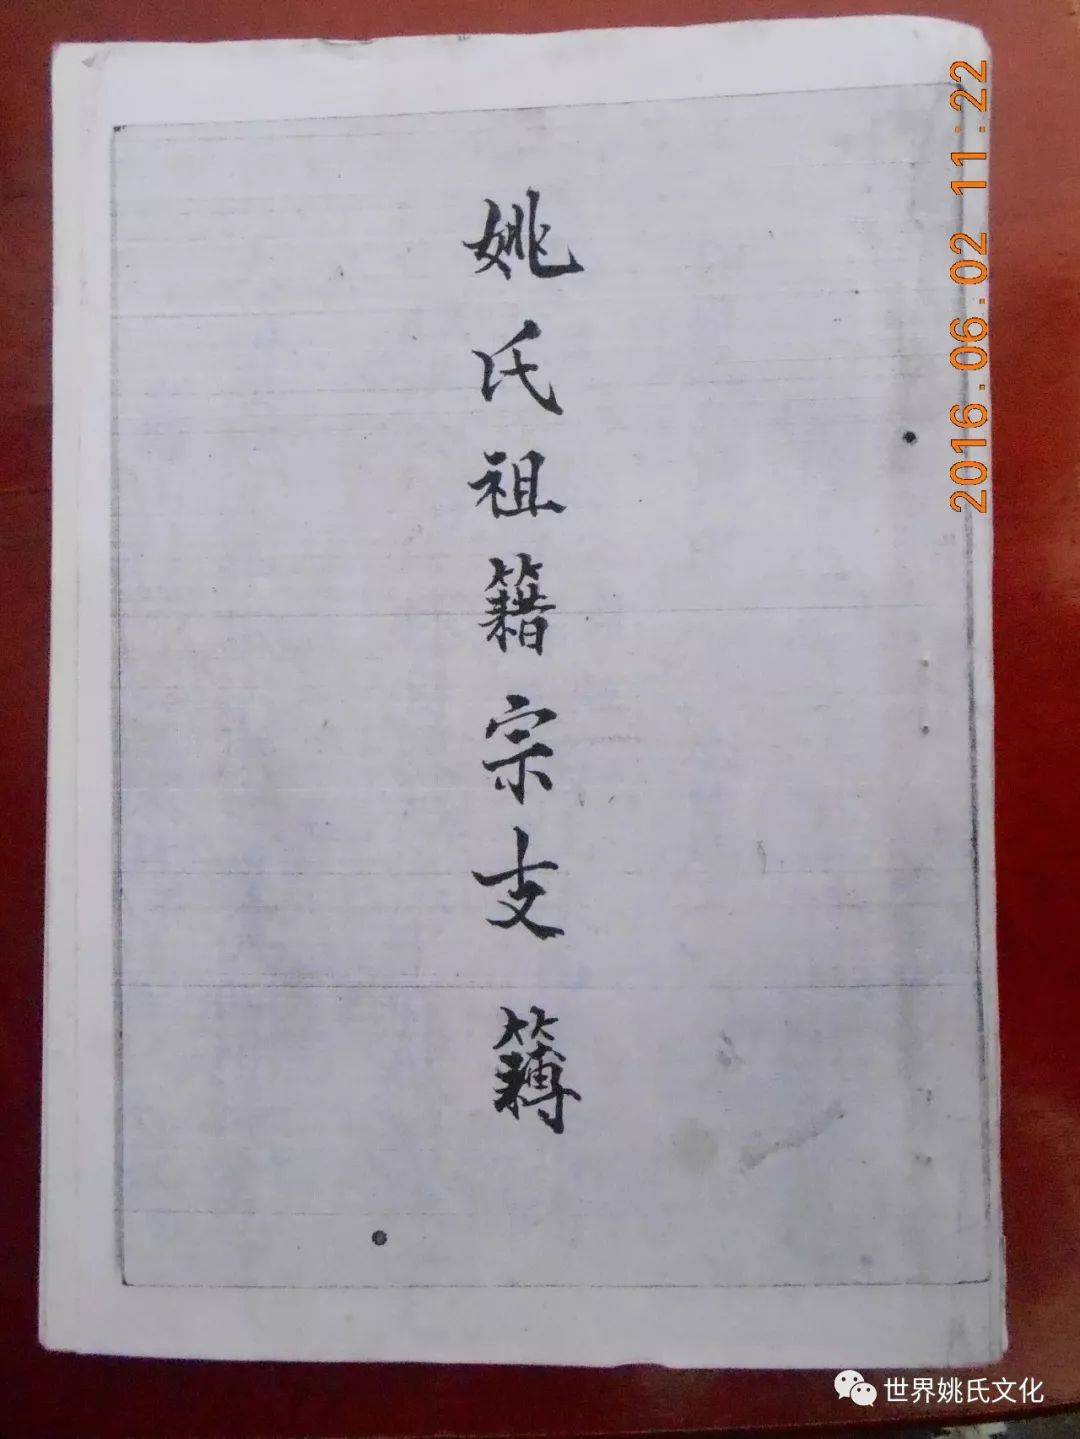 姚氏祖籍宗支簿
2016.06.02 11:22
世界姚氏文化